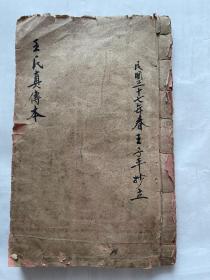 民国三十七年春王子年抄立
王氏真傳本